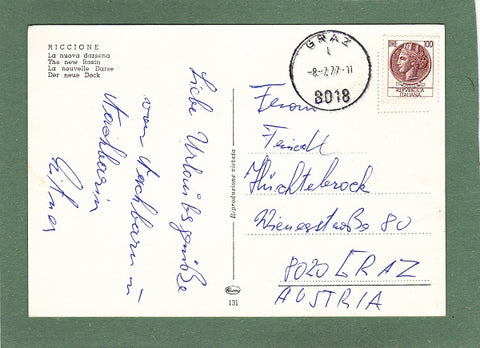 RICCIONE
La nuova darsena
The new Basin
La nouvelle Darse
Der neue Dock
Liebe Urlaubsgrüße
von Nachbarn u
Nachbarin
Riproduzione vietata
131
GRAZ
1
-8.-7.77-11
8018
LIRE 100
REPVBBLICA
ITALIANA
Friedl
Wienerstraße 80
8020 GRAZ
AUSTRIA